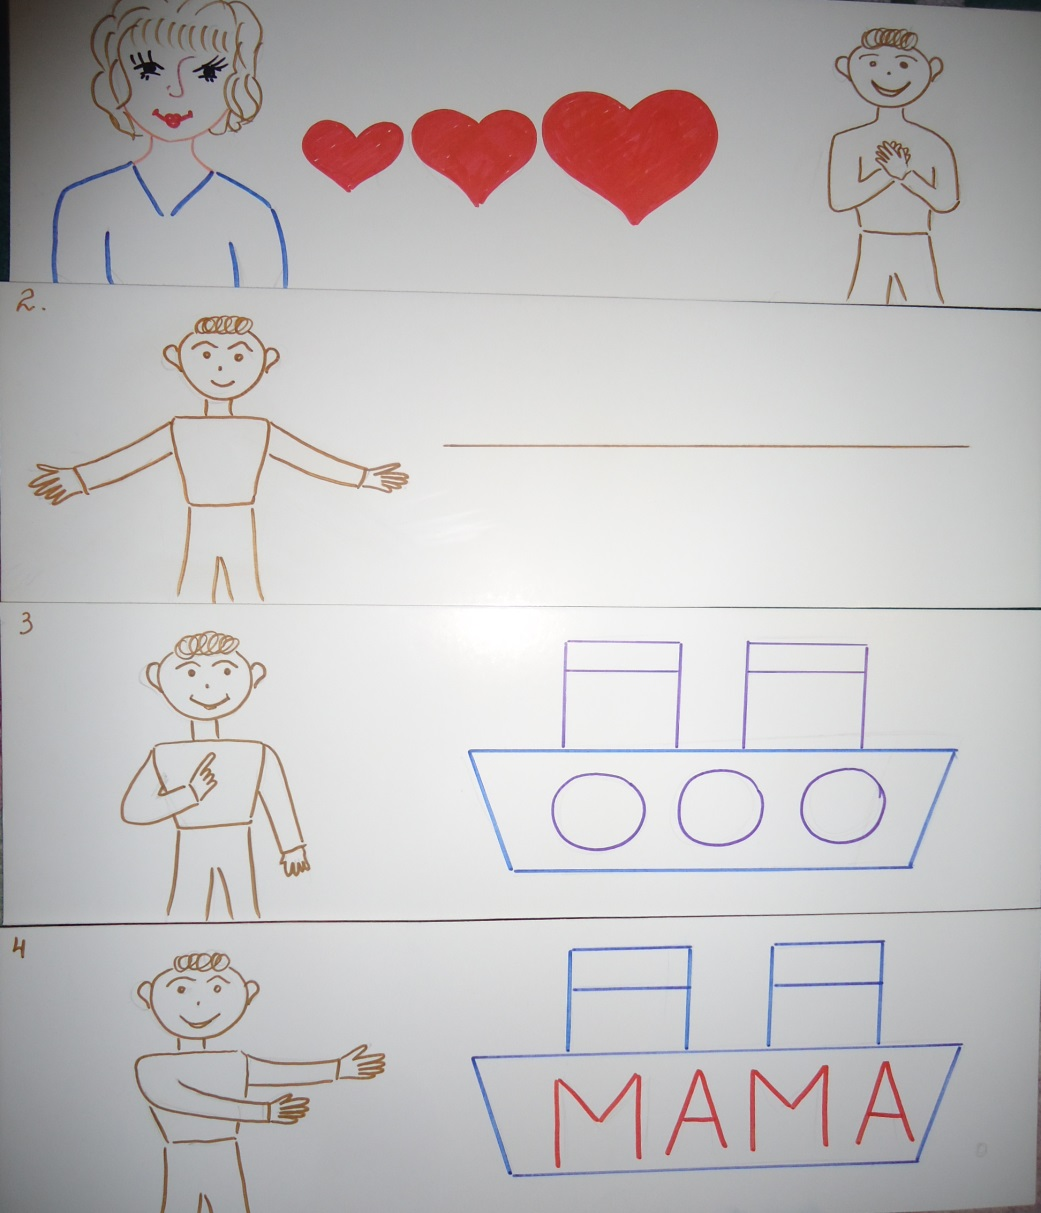 2.
3
4
МАМА